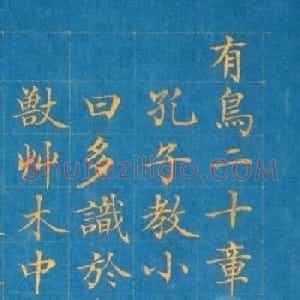 有鳥二十章
孔子教小
曰多識於
獸艸木中
Shufaziliao.com